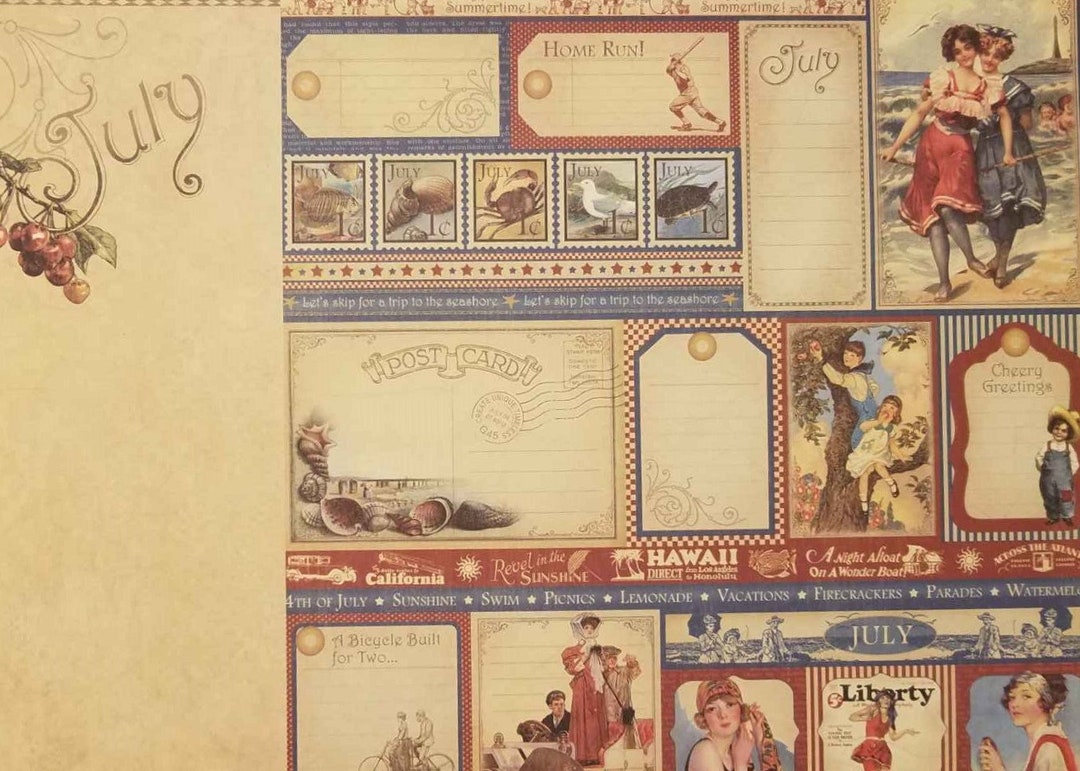 Summertime!
Summertime!
July
HOME RUN!
July
JULY
1¢
JULY
1¢
JULY
1¢
JULY
1¢
JULY
1¢
Let's skip for a trip to the seashore ★ Let's skip for a trip to the seashore
POST CARD
CREATE UNIQUE
G45
Cheery
Greetings
California
Revel in the
SUNSHINE
HAWAII
DIRECT from Los Angeles
to Honolulu
A Night Afloat
On A Wonder Boat!
ACROSS THE ATLAN
4TH OF JULY ★ SUNSHINE ★ SWIM ★ PICNICS ★ LEMONADE ★ VACATIONS ★ FIRECRACKERS ★ PARADES ★ WATERMELO
A Bicycle Built
for Two...
JULY
5¢
Liberty